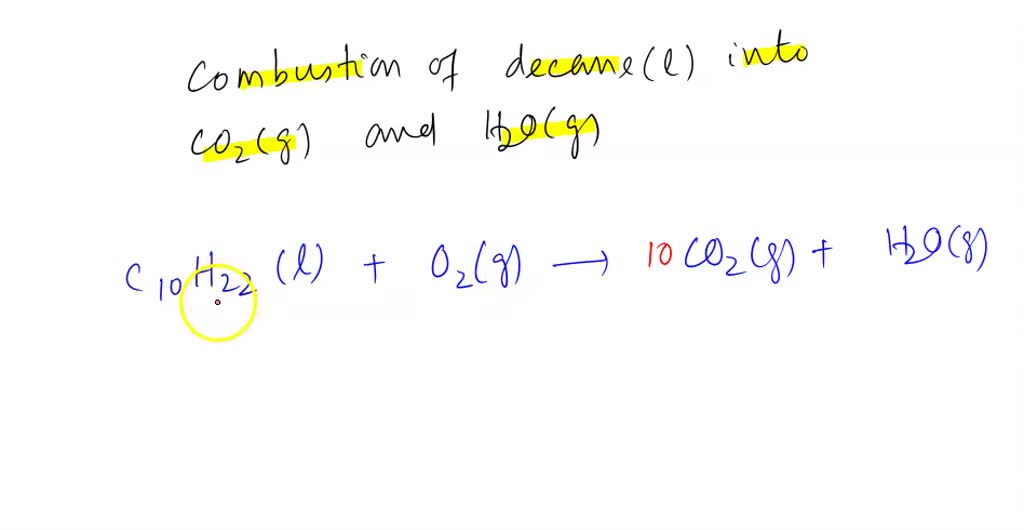 combustion of decane(l) into
CO₂(g) and H₂O(g)
C₁₀H₂₂(l) + O₂(g) → 10 CO₂(g) + H₂O(g)